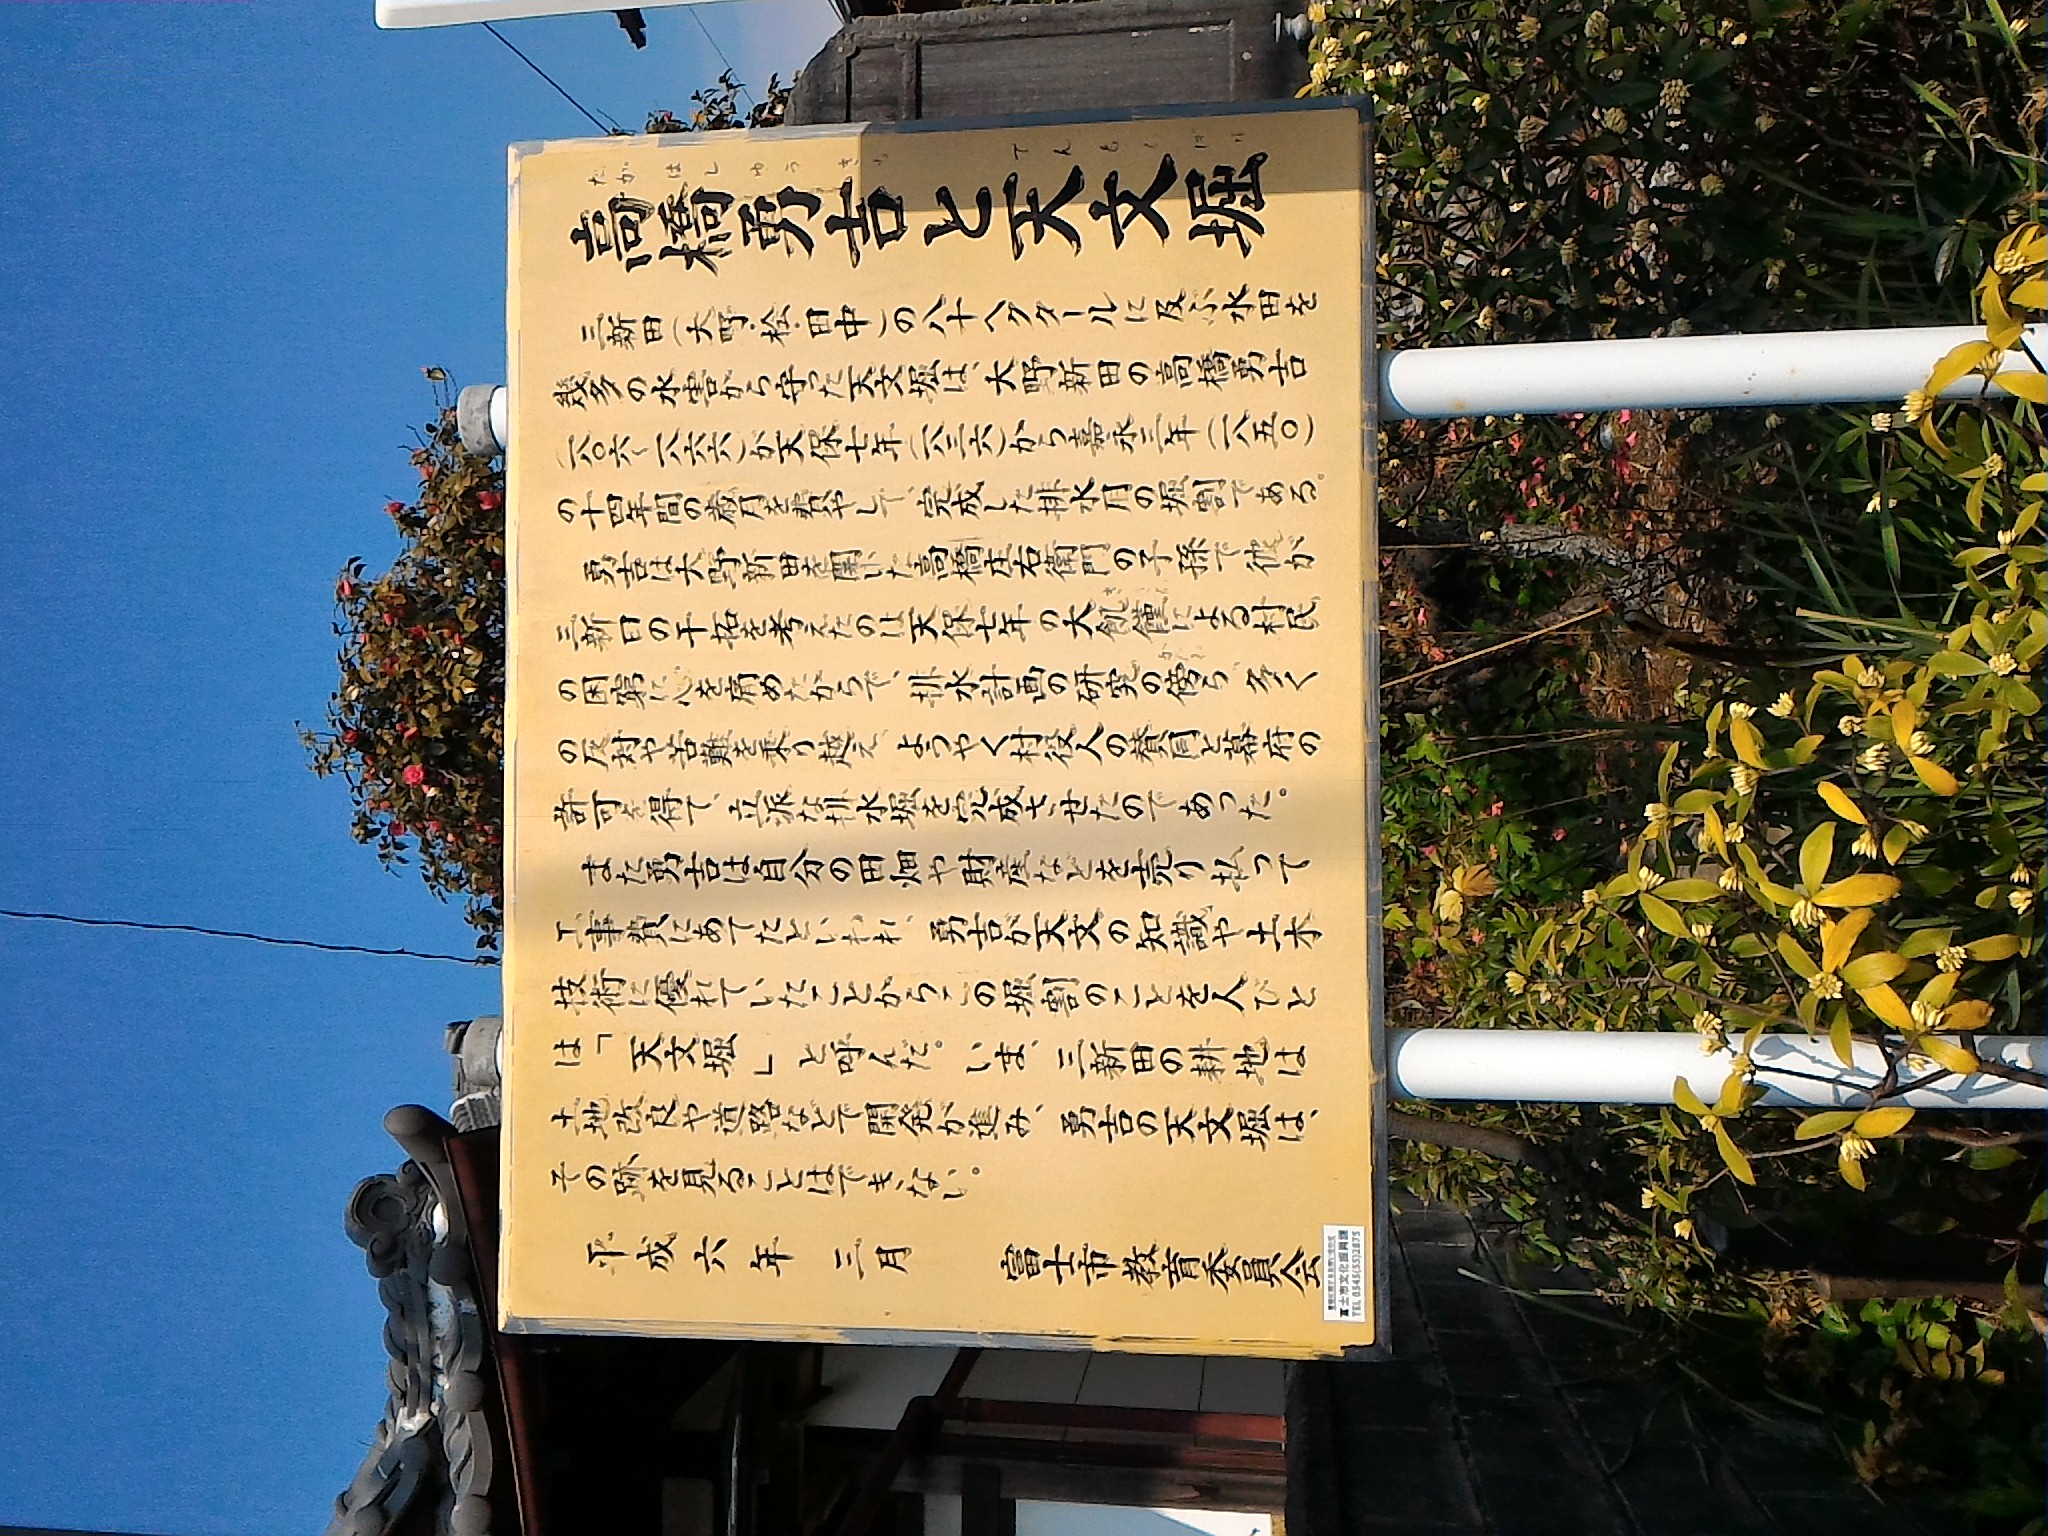 たかはしゆうきち てんもんぼり
高橋勇吉と天文堀
三新田(大野・桧・田中)の八十ヘクタールに及ぶ水田を
幾多の水害から守った天文堀は、大野新田の高橋勇吉
(一八〇六〜一八六六)が天保七年(一八三六)から嘉永三年(一八五〇)
の十四年間の歳月を費やして、完成した排水用の堀割である。
勇吉は大野新田を開いた高橋庄右衛門の子孫で彼が
三新田の干拓を考えたのは天保七年の大飢饉による村民
の困窮に心を痛めたからで、排水計画の研究の傍ら、多く
の反対や苦難を乗り越え、ようやく村役人の賛同と幕府の
許可を得て、立派な排水堀を完成させたのであった。
また勇吉は自分の田畑や財産などを売り払って
工事費にあてたといわれ、勇吉が天文の知識や土木
技術に優れていたことからこの堀割のことを人びと
は「天文堀」と呼んだ。いま、三新田の耕地は
土地改良や道路などで開発が進み、勇吉の天文堀は、
その跡を見ることはできない。
平成六年 三月
富士市教育委員会
富士市文化振興課
TEL 0545(55)2875